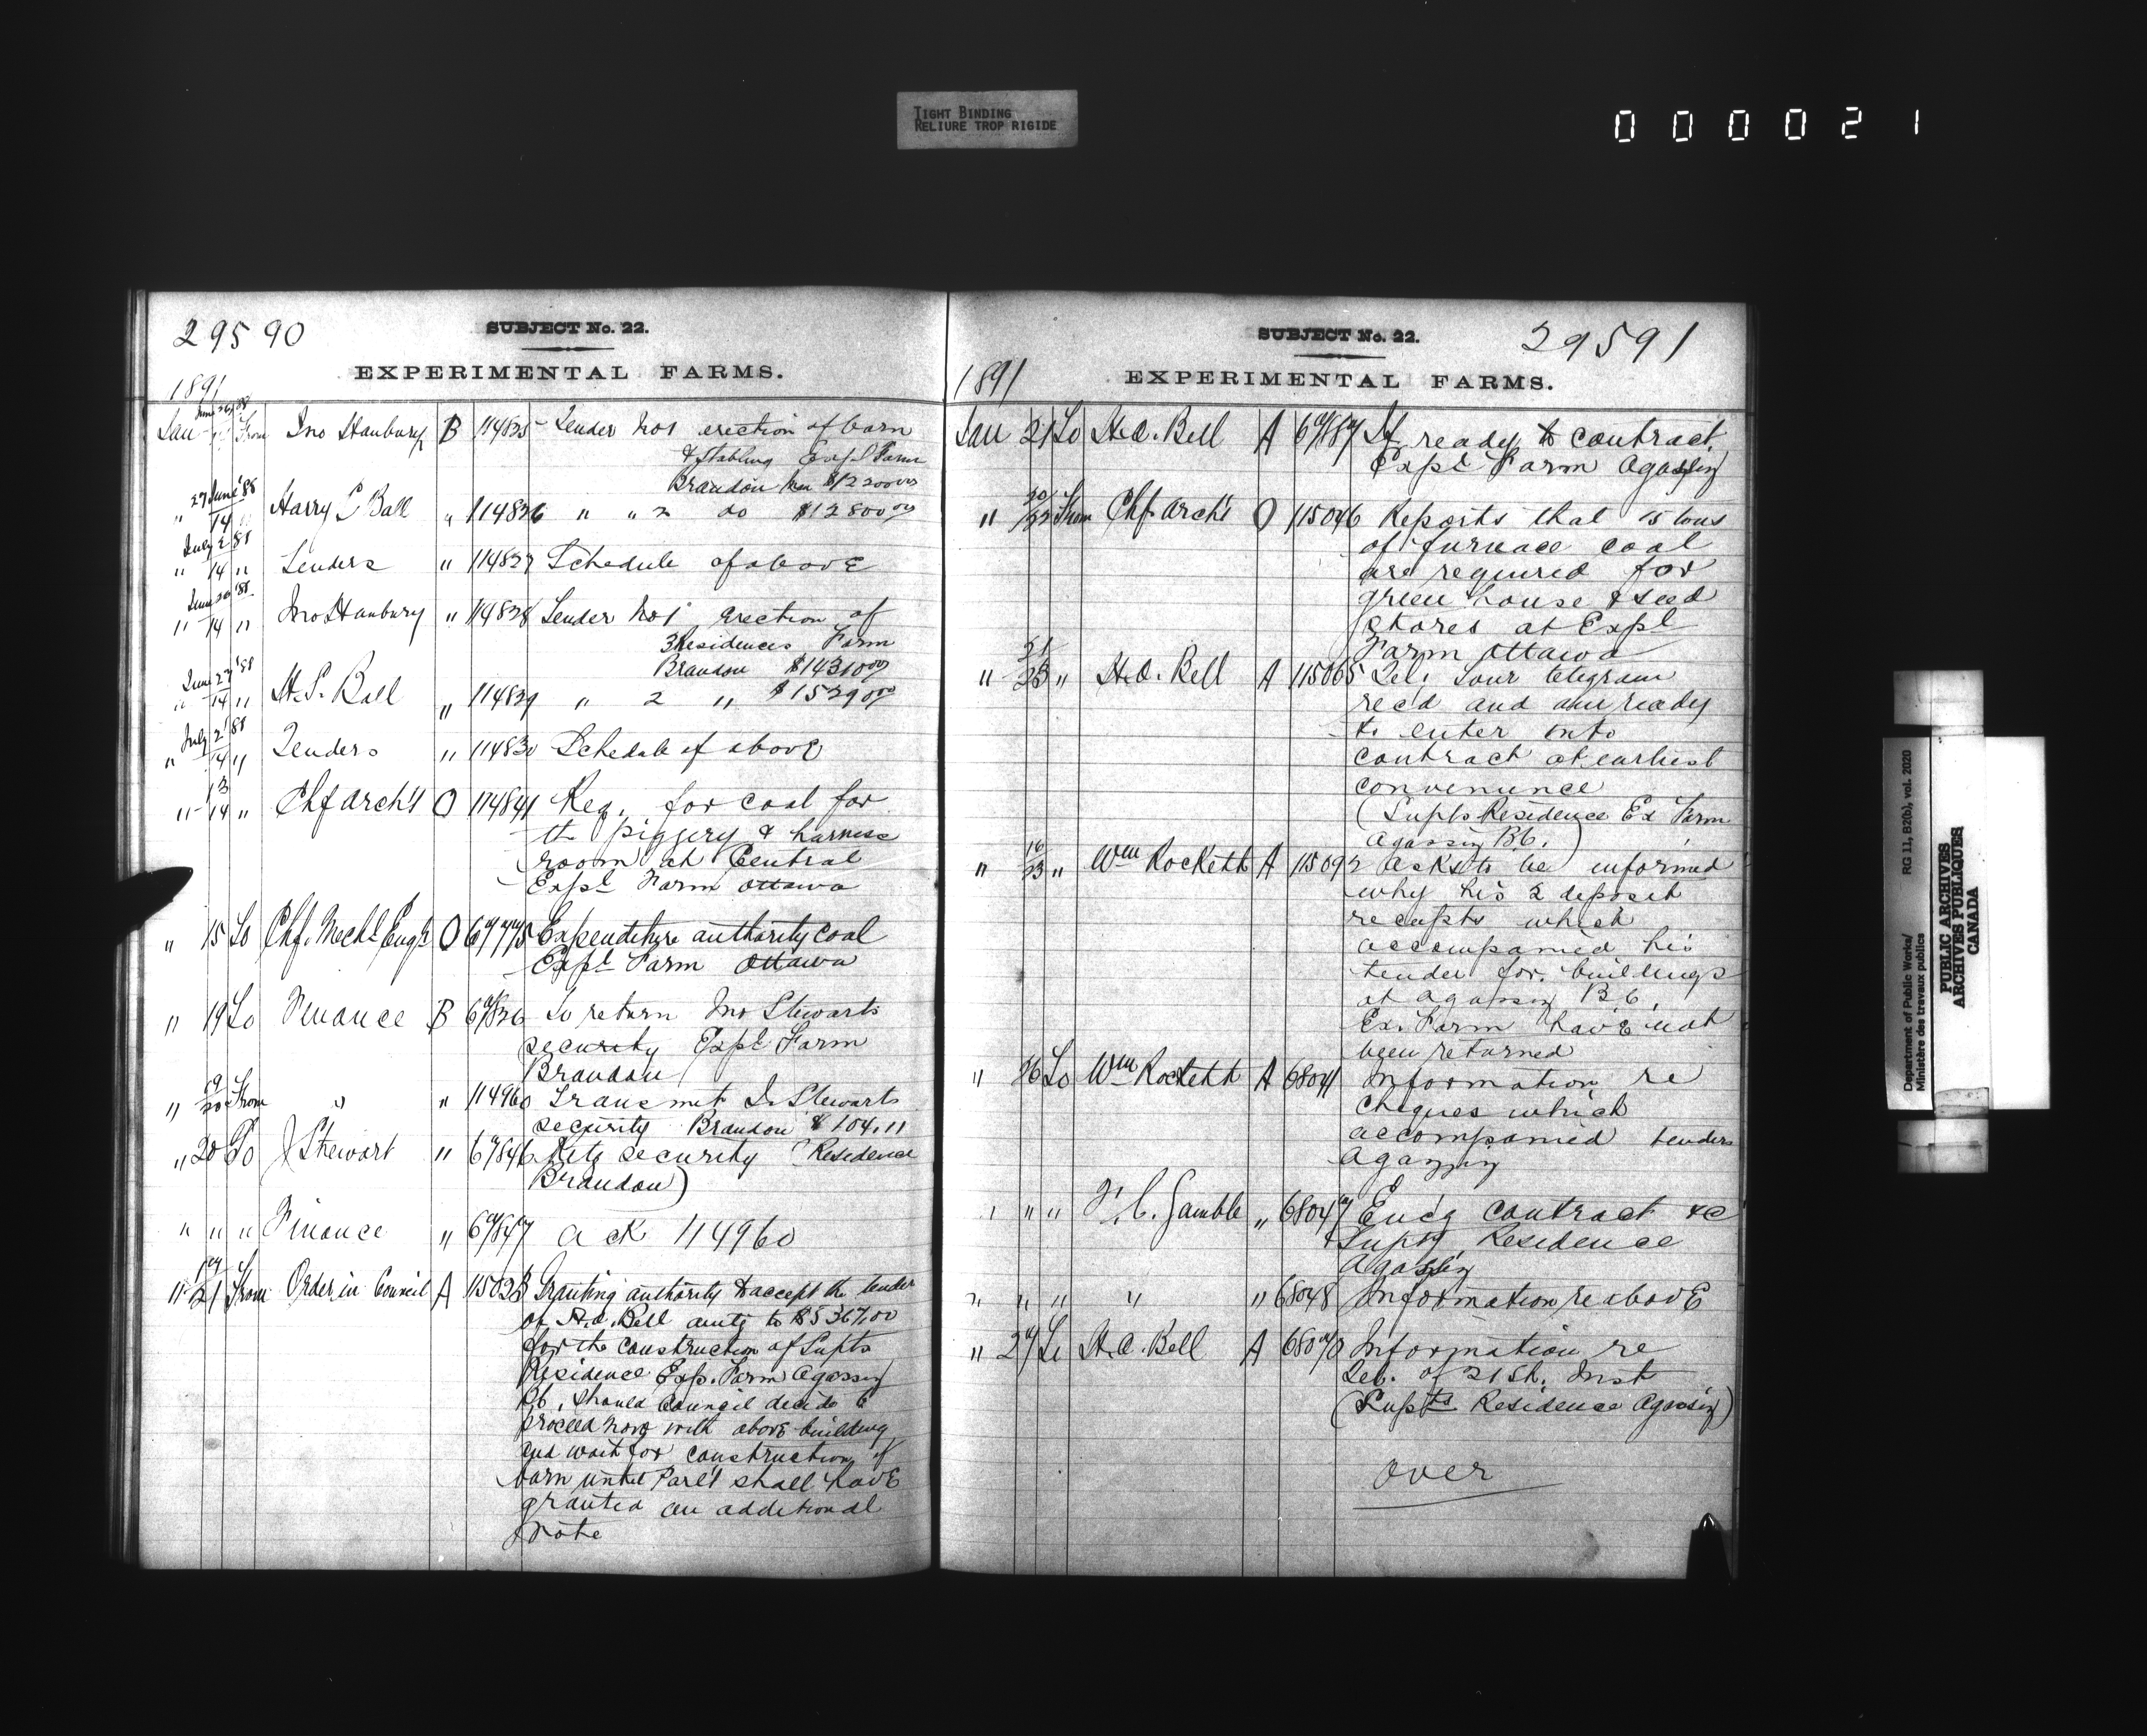 TIGHT BINDING
RELIURE TROP RIGIDE
000021
29590
SUBJECT No. 22.
EXPERIMENTAL FARMS.
1891
June 26/88
Jan 14 From Jno Hanbury B 114825 Tender No 1 erection of barn
& stabling Expl Farm
Brandon Man $12200.00
27 June '88
" 14 " Harry S Ball " 114826 " " 2 do $12800.00
July 2 88
" 14 " Tenders " 114827 Schedule of above
June 26 '88
" 14 " Jno Hanbury " 114828 Tender No 1 erection of
3 Residences Farm
Brandon $14310.00
June 27 '88
" 14 " H. S. Ball " 114829 " 2 " $15290.00
July 2 '88
" 14 " Tenders " 114830 Schedule of above
13
" 14 " Chf Archt O 114841 Req. for coal for
the piggery & harness
room at Central
Expl Farm Ottawa
" 15 To Chf. Mechl Engr O 67745 Expenditure authority coal
Expl Farm Ottawa
" 19 To Finance B 67826 To return Jno Stewarts
security Expl Farm
Brandon
19
" 20 From " " 114960 Transmit J. Stewarts
security Brandon $104.11
" 20 To J Stewart " 67846 Rets security (Residence
Brandon)
" " " Finance " 67847 ack 114960
19
" 21 From Order in Council A 115023 Granting authority to accept the tender
of H.A. Bell amtg to $5367.00
for the construction of Supts
Residence Exp. Farm Agassiz
B.C., should Council decide to
proceed now with above building
and wait for construction of
barn until Parl't shall have
granted an additional
vote
SUBJECT No. 22.
29591
1891
EXPERIMENTAL FARMS.
Jan 21 To H.A. Bell A 67887 If ready to contract
Expl Farm Agassiz
20
" 22 From Chf Archt O 115046 Reports that 15 tons
of furnace coal
are required for
green house & seed
stores at Expl
Farm Ottawa
21
" 23 " H.A. Bell A 115065 Tel: Your telegram
recd and am ready
to enter into
contract at earliest
convenience
(Supts Residence Ex Farm
Agassiz B.C.)
16
" 23 " Wm Rockett A 115092 Asks to be informed
why his 2 deposit
receipts which
accompanied his
tender for buildings
at Agassiz B.C.
Ex. Farm have not
been returned
" 26 To Wm Rockett A 68041 Information re
cheques which
accompanied tenders
Agassiz
" " " F. C. Gamble " 68047 Enc'g contract &c
Supts Residence
Agassiz
" " " " " 68048 Information re above
" 27 To H.A. Bell A 68070 Information re
Tel. of 21st. Inst
(Supts Residence Agassiz)
over
Department of Public Works/
Ministère des travaux publics
RG 11, B2(b), vol. 2020
PUBLIC ARCHIVES
ARCHIVES PUBLIQUES
CANADA